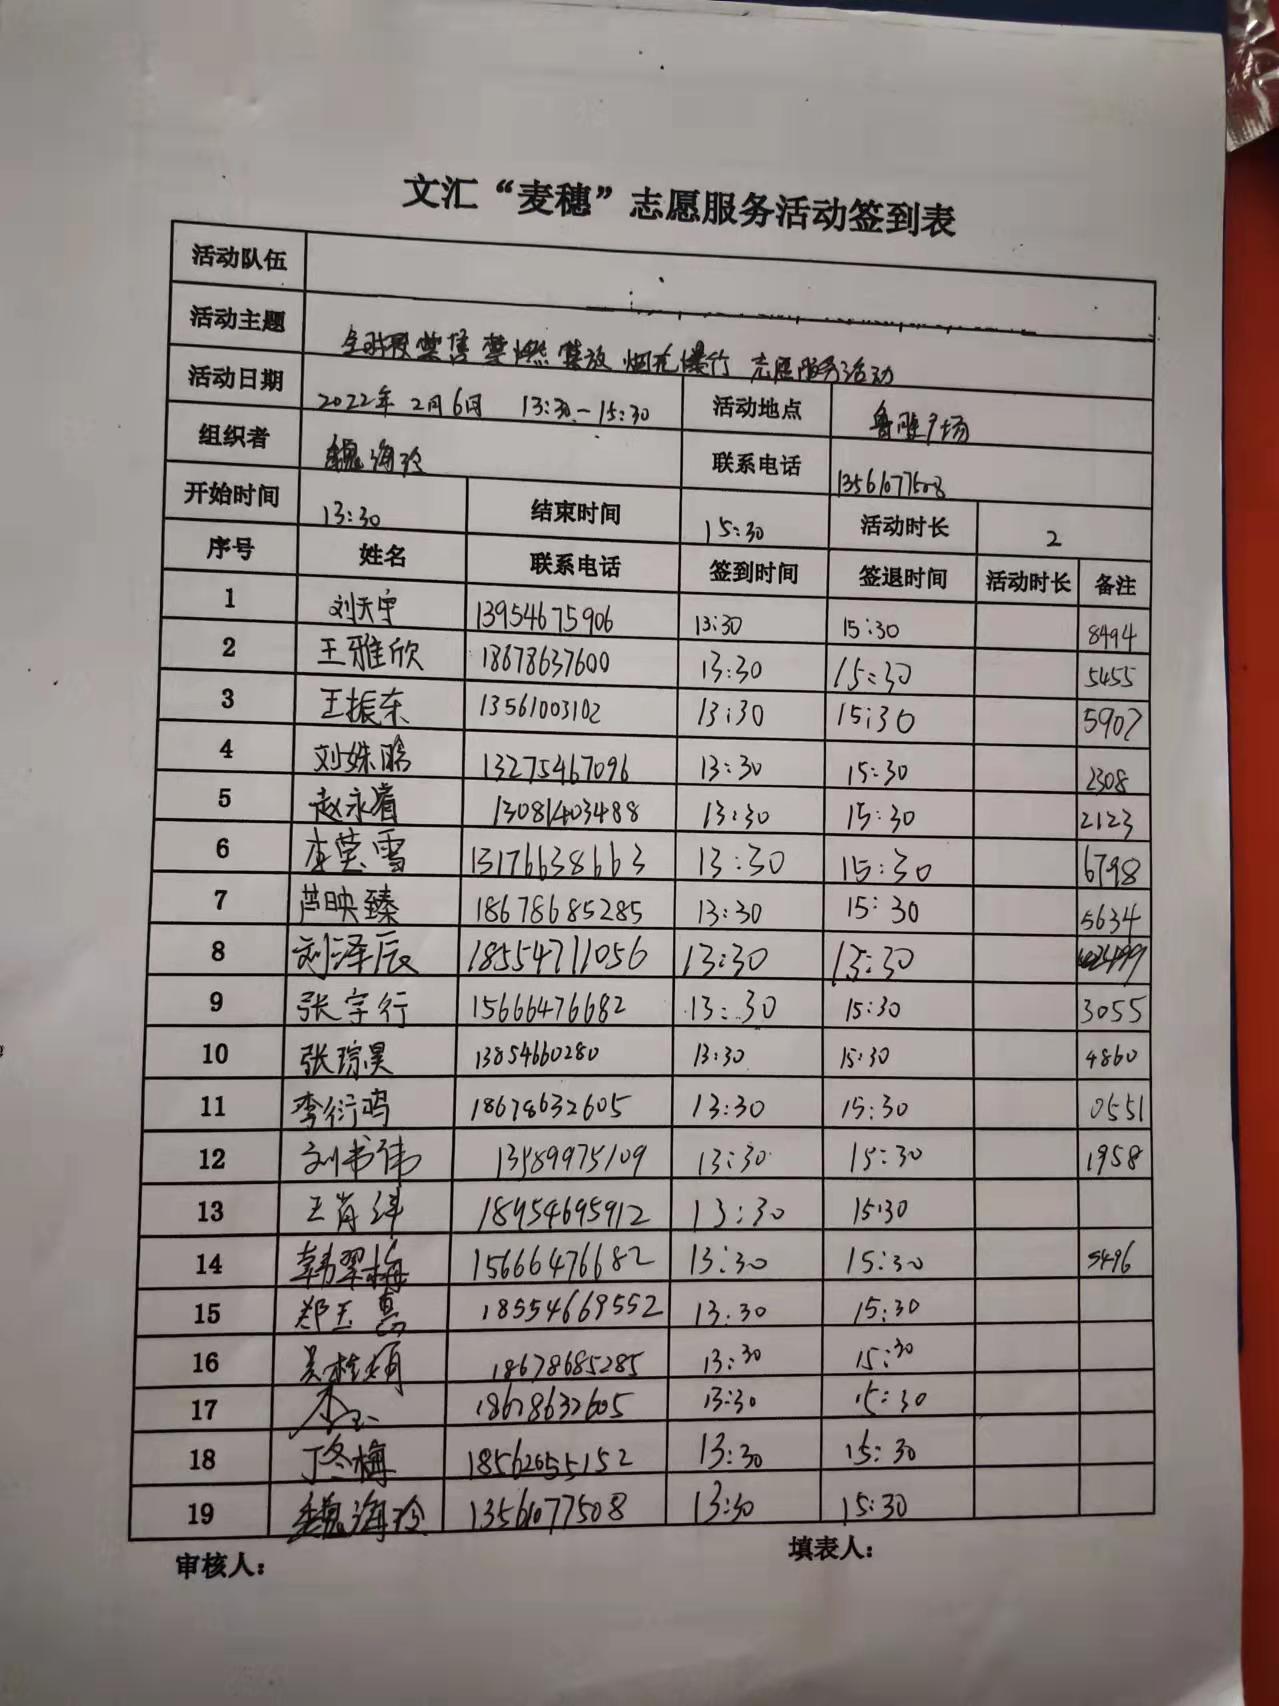 文汇“麦穗”志愿服务活动签到表
活动队伍
活动主题 全时段禁售禁燃禁放烟花爆竹志愿服务活动
活动日期 2022年2月6日 13:30-15:30 活动地点 鲁雅广场
组织者 魏海玲 联系电话 13561077508
开始时间 13:30 结束时间 15:30 活动时长 2
序号 姓名 联系电话 签到时间 签退时间 活动时长 备注
1 刘天宇 13954675906 13:30 15:30 8494
2 王雅欣 18678637600 13:30 15:30 5455
3 王振东 13561003102 13:30 15:30 5907
4 刘姝晗 13275467096 13:30 15:30 2308
5 赵永睿 13081403488 13:30 15:30 2123
6 莹雪 13176638663 13:30 15:30 6798
7 芦映臻 18678685285 13:30 15:30 5634
8 刘泽辰 18554711056 13:30 15:30
9 张宇行 15666476682 13:30 15:30 3055
10 张琮昊 13854660280 13:30 15:30 4860
11 李衍鸿 18678632605 13:30 15:30 0551
12 刘书伟 13589975109 13:30 15:30 1958
13 王肖洋 18954695912 13:30 15:30
14 韩翠梅 15666476682 13:30 15:30 5496
15 郑玉 18554669552 13:30 15:30
16 吴桂娟 18678685285 13:30 15:30
17 18678632605 13:30 15:30
18 丁冬梅 18562655152 13:30 15:30
19 魏海玲 13561077508 13:30 15:30
审核人： 填表人：